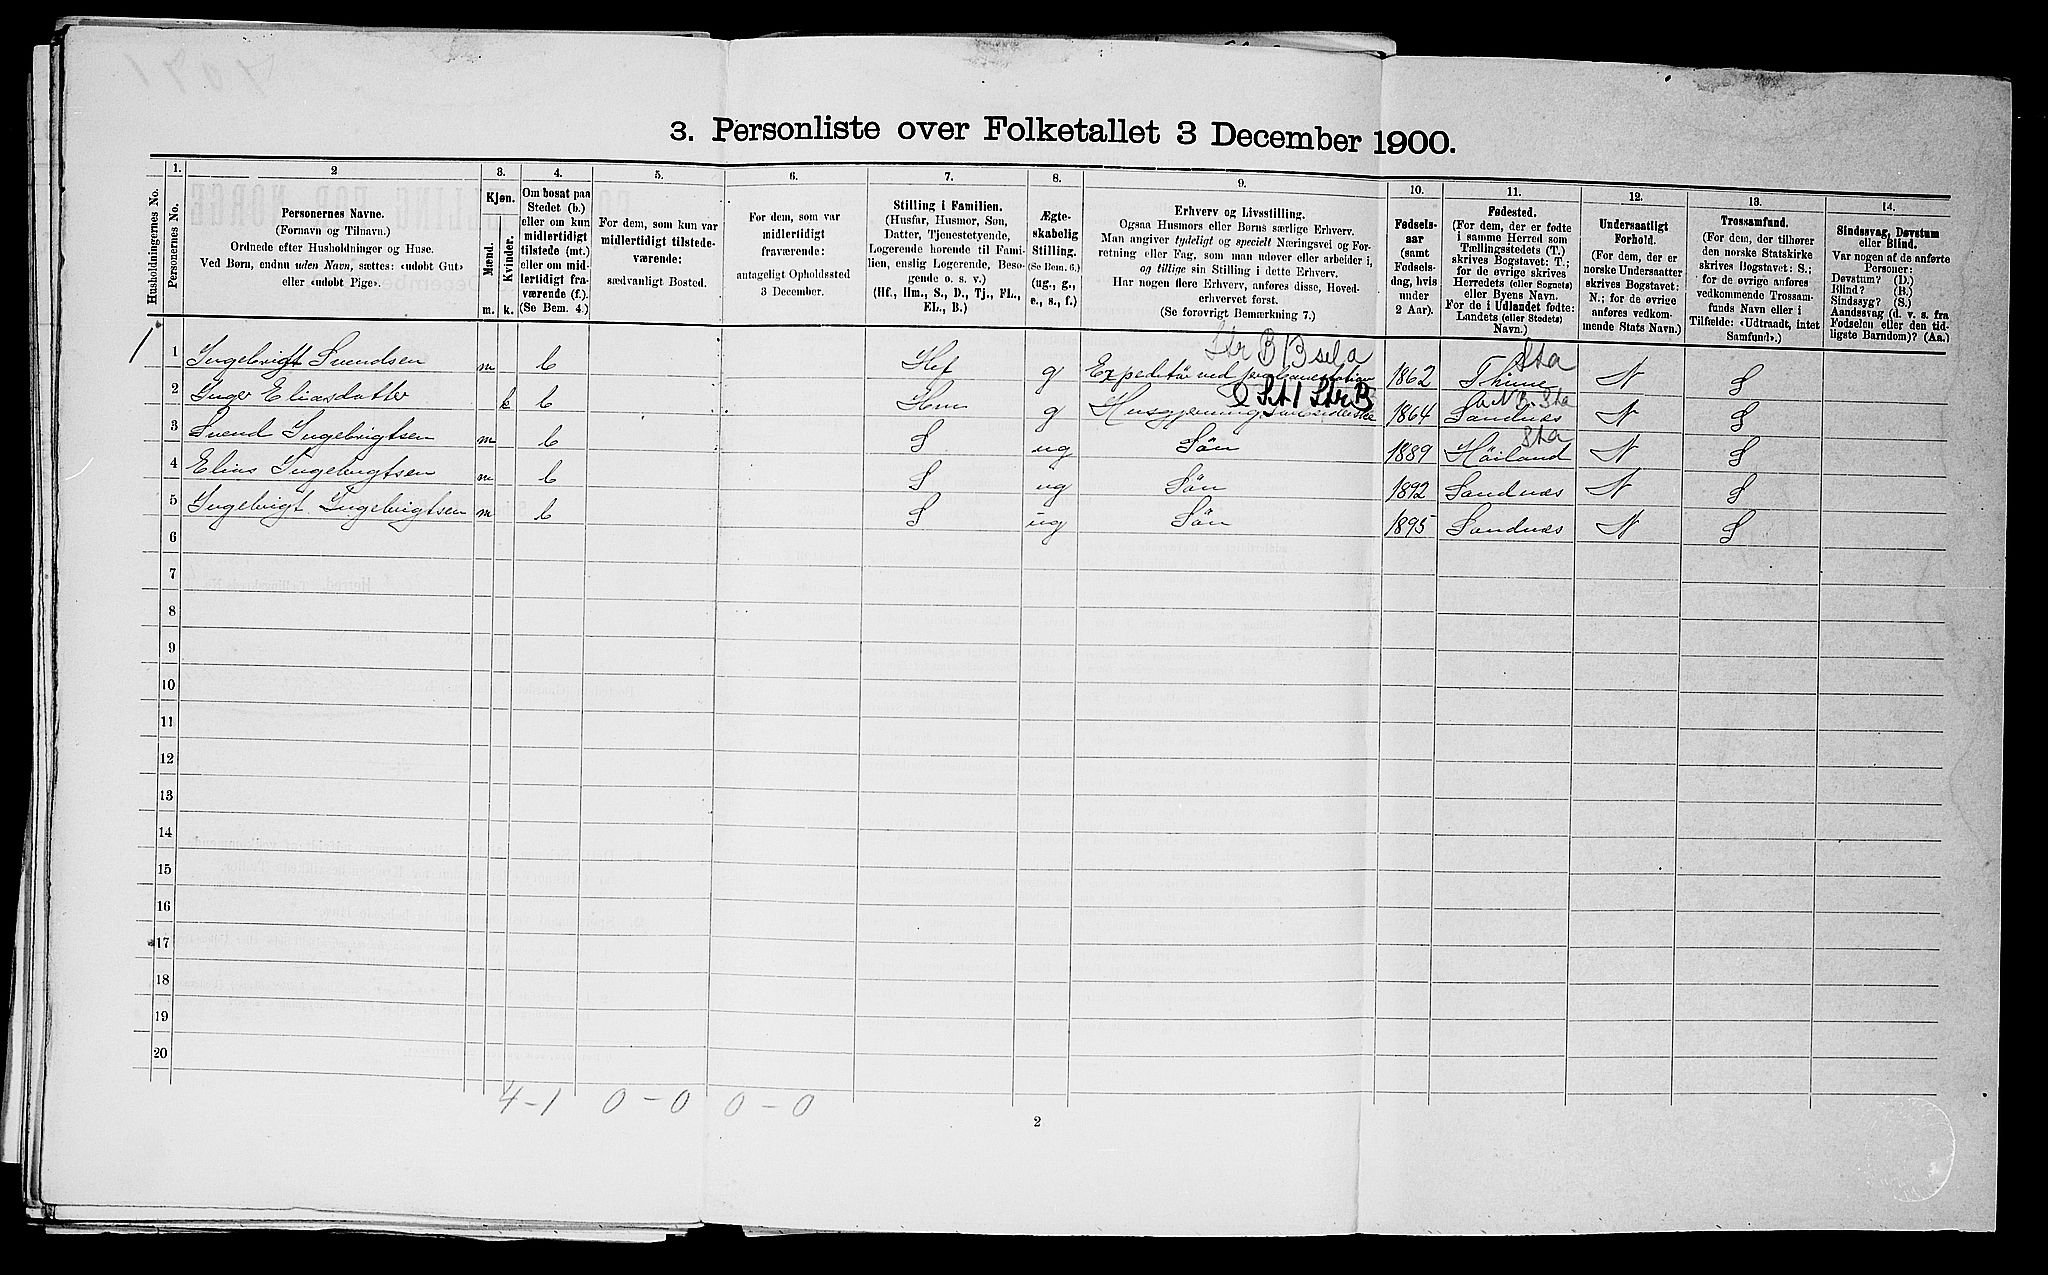 3. Personliste over Folketallet 3 December 1900.
Husholdningernes No.
1.
Personernes No.
2
Personernes Navne.
(Fornavn og Tilnavn.)
Ordnede efter Husholdninger og Huse.
Ved Børn, endnu uden Navn, sættes: «udobt Gut»
eller «udobt Pige».
3.
Kjøn.
Mænd.
Kvinder.
m. k.
4.
Om bosat paa
Stedet (b.)
eller om kun
midlertidigt
tilstede (mt.)
eller om mid-
lertidigt fra-
værende (f.).
(Se Bem. 4.)
5.
For dem, som kun var
midlertidigt tilstede-
værende:
sædvanligt Bosted.
6.
For dem, som var
midlertidigt
fraværende:
antageligt Opholdssted
3 December.
7.
Stilling i Familien.
(Husfar, Husmor, Søn,
Datter, Tjenestetyende,
Logerende hørende til Fami-
lien, enslig Logerende, Besø-
gende o. s. v.)
(Hf., Hm., S., D., Tj., FL.,
EL., B.)
8.
Ægte-
skabelig
Stilling.
(Se Bem. 6.)
(ug., g.,
e., s., f.)
9.
Erhverv og Livsstilling.
Ogsaa Husmors eller Børns særlige Erhverv.
Man angiver tydeligt og specielt Næringsvei og For-
retning eller Fag, som man udøver eller arbeider i,
og tillige sin Stilling i dette Erhverv.
Har nogen flere Erhverv, anføres disse, Hoved-
erhvervet først.
(Se forøvrigt Bemærkning 7.)
10.
Fødsels-
aar
(samt
Fødsels-
dag, hvis
under
2 Aar).
11.
Fødested.
(For dem, der er fødte
i samme Herred som
Tællingsstedets (T.)
skrives Bogstavet: T.;
for de øvrige skrives
Herredets (eller Sognets)
eller Byens Navn.
For de i Udlandet fødte:
Landets (eller Stedets)
Navn.)
12.
Undersaatligt
Forhold.
(For dem, der er
norske Undersaatter
skrives Bogstavet:
N.; for de øvrige
anføres vedkom-
mende Stats Navn.)
13.
Trossamfund.
(For dem, der tilhører
den norske Statskirke
skrives Bogstavet: S.;
for de øvrige anføres
vedkommende Trossam-
funds Navn eller i
Tilfælde: «Udtraadt, intet
Samfund».)
14.
Sindssvag, Døvstum
eller Blind.
Var nogen af de anførte
Personer:
Døvstum? (D.)
Blind? (B.)
Sindssyg? (S.)
Aandssvag (d. v. s. fra
Fødselen eller den tid-
ligste Barndom)? (Aa.)
Str B B sela Sta
1 1 Ingebrigt Svendsen m b Hf g Expeditør ved jernbanestation 1862 Thime N S
St 1 Str B NB Sta
2 Inger Eliasdatter k b Hm g Husgjerning 1864 Sandnes N S
Sta
3 Svend Ingebrigtsen m b S ug Søn 1889 Høiland N S
4 Elias Ingebrigtsen m b S ug Søn 1892 Sandnæs N S
5 Ingebrigt Ingebrigtsen m b S ug Søn 1895 Sandnæs N S
6
7
8
9
10
11
12
13
14
15
16
17
18
19
20
4-1 0-0 0-0
2